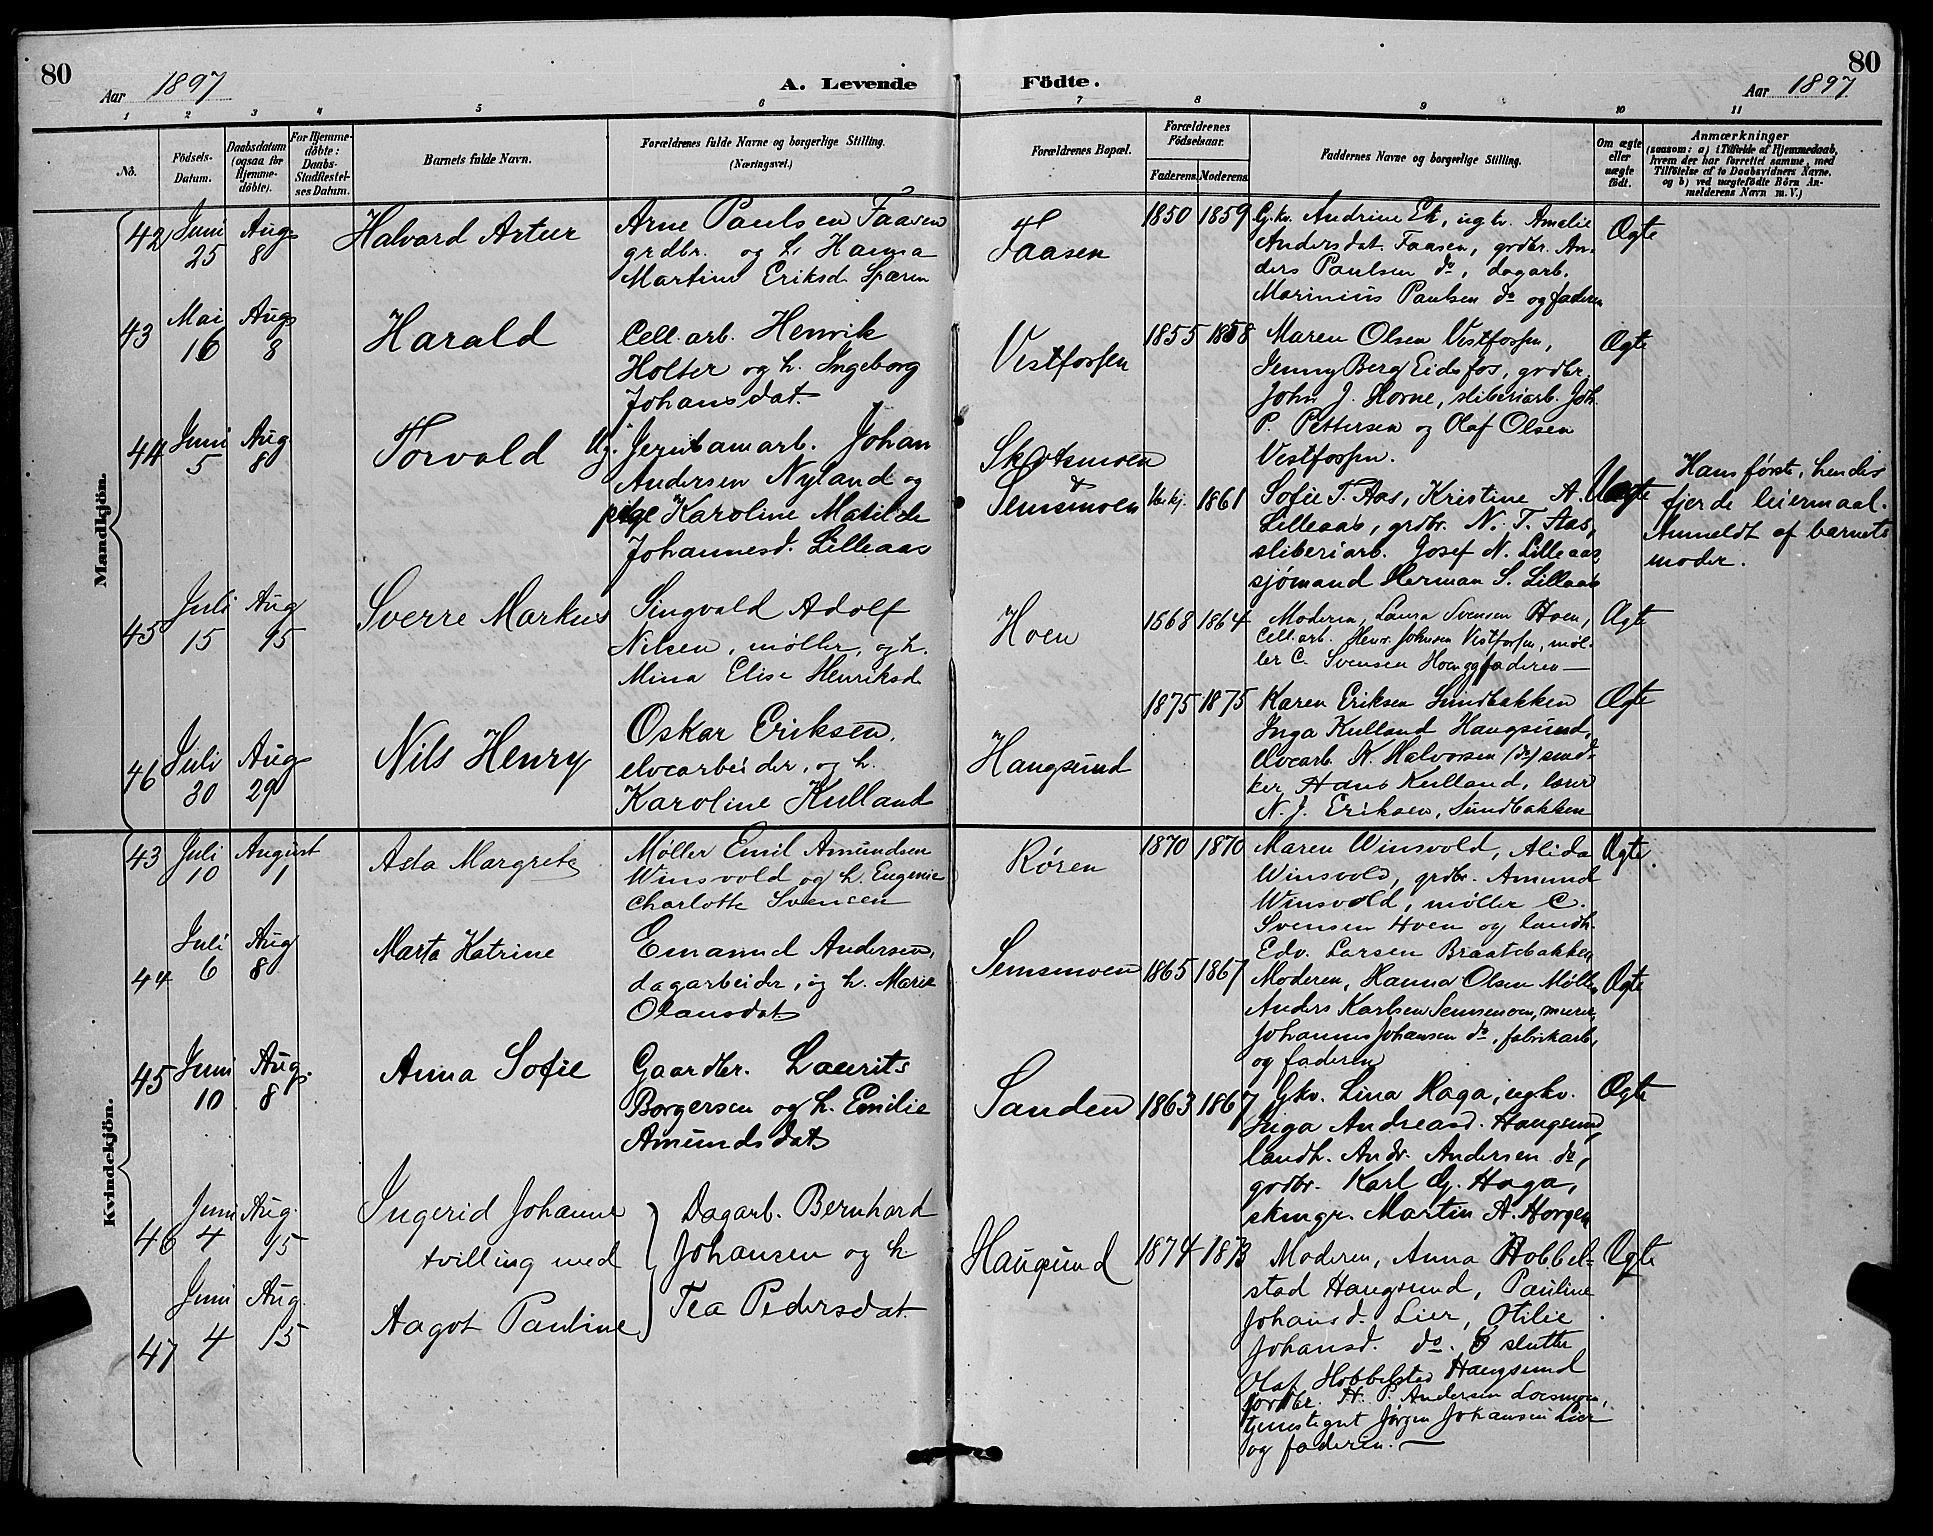 80
Aar 1897
A. Levende Födte.
80
Aar 1897
1 2 3 4 5 6 7 8 9 10 11
No.
Födsels-Datum.
Daabsdatum (ogsaa for Hjemme-döbte).
For Hjemme-döbte: Daabs-Stadfestel-ses Datum.
Barnets fulde Navn.
Forældrenes fulde Navne og borgerlige Stilling. (Næringsvei.)
Forældrenes Bopæl.
Forældrenes Födselsaar.
Faderens. Moderens.
Faddernes Navne og borgerlige Stilling.
Om ægte eller uægte födt.
Anmærkninger
(saasom: a) i Tilfælde af Hjemmedaab, hvem der har forrettet samme, med Tilföielse af to Daabsvidners Navne, og b) ved uægtefödte Börn An-melderens Navn m. V.)
Mandkjön.
42 Juni 25 Aug 8 Halvard Artur
Arne Paulsen Faasen
grdbr. og h. Hanna
Martine Eriksd. Spæren
Faasen
1850 1859
G.kv. Andrine Ek, ug.kv. Amalie
Andersdat. Faasen, grdbr. An-
ders Paulsen do, dagarb.
Marinius Paulsen do og faderen
Ægte
43 Mai 16 Aug 8 Harald
Cell. arb. Henrik
Holter og h. Ingeborg
Johansdat.
Vestfossen
1855 1858
Maren Olsen Vestfossen,
Jenny Berg Eidsfos, grdbr.
John J. Horne, sliberiarb. Joh.
P. Pettersen og Olaf Olsen
Vestfossen.
Ægte
44 Juni 5 Aug 8 Torvald
Ug. Jernbanearb. Johan
Andersen Nyland og
pige Karoline Matilde
Johannesd. Lilleaas
Skotsmoen
&
Semsmoen
Ubekj. 1861
Sofie T. Aas, Kristine A.
Lilleaas, grdbr. N. T. Aas,
sliberiarb. Josef N. Lilleaas
sjömand Herman S. Lilleaas
Uægte
Hans første, hendes
fjerde leiermaal.
Anmeldt af barnets
moder.
45 Juli 15 Aug 15 Sverre Markus
Singvald Adolf
Nilsen, møller, og h.
Mina Elise Henriksd.
Hoen
1868 1864
Moderen, Laura Svensen Hoen,
Cell. arb. Henr. Johnsen Vestfossen, møl-
ler C. Svensen Hoen og faderen —
Ægte
46 Juli 30 Aug 29 Nils Henry
Oskar Eriksen,
elvearbeider, og h.
Karoline Kulland
Haugsund
1875 1875
Karen Eriksen Sundbakken
Inga Kulland Haugsund,
Elvearb. N. Halvorsen do, snd-
ker Hans Kulland, lærer
N. J. Eriksen, Sundbakken
Ægte
Kvindekjön.
43 Juli 10 August 1 Asta Margrete
Møller Emil Amundsen
Winsvold og h. Eugenie
Charlotte Svensen
Røren
1870 1870
Maren Winsvold, Alida
Winsvold, grdbr. Amund
Winsvold, møller C.
Svensen Hoen og landh.
Edv. Larsen Braatebakken
Ægte.
44 Juli 6 Aug 8 Marta Katrine
Emanuel Andersen,
dagarbeider, og h. Marie
Olausdat.
Semsmoen
1865 1867
Moderen, Hanna Olsen Møll.,
Anders Karlsen Semsmoen, murer,
Johannes Johansen do, fabrikarb.
og faderen
Ægte
45 Juni 10 Aug. 8 Anna Sofie
Gaardbr. Laurits
Borgersen og h. Emilie
Amundsdat.
Sanden
1863 1867
Gkv. Lina Haga, ug.kv.
Inga Andreasd. Haugsund,
landh. Andr. Andersen do,
grdbr. Karl G. Haga,
skmgr. Martin A. Horgen
Ægte
46 Juni 4 Aug. 15 Ingerid Johanne
tvilling med
47 Juni 4 Aug. 15 Aagot Pauline
Dagarb. Bernhard
Johansen og h
Tea Pedersdat.
Haugsund
1874 1873
Moderen, Anna Hobbel-
stad Haugsund, Pauline
Johansd. Lier, Otilie
Johansd. do. slutter
Olaf Hobbelstad Haugsund
jordbr. H. P. Andersen Loesmoen,
tjenestegut Jørgen Johansen Lier
og faderen. —
Ægte